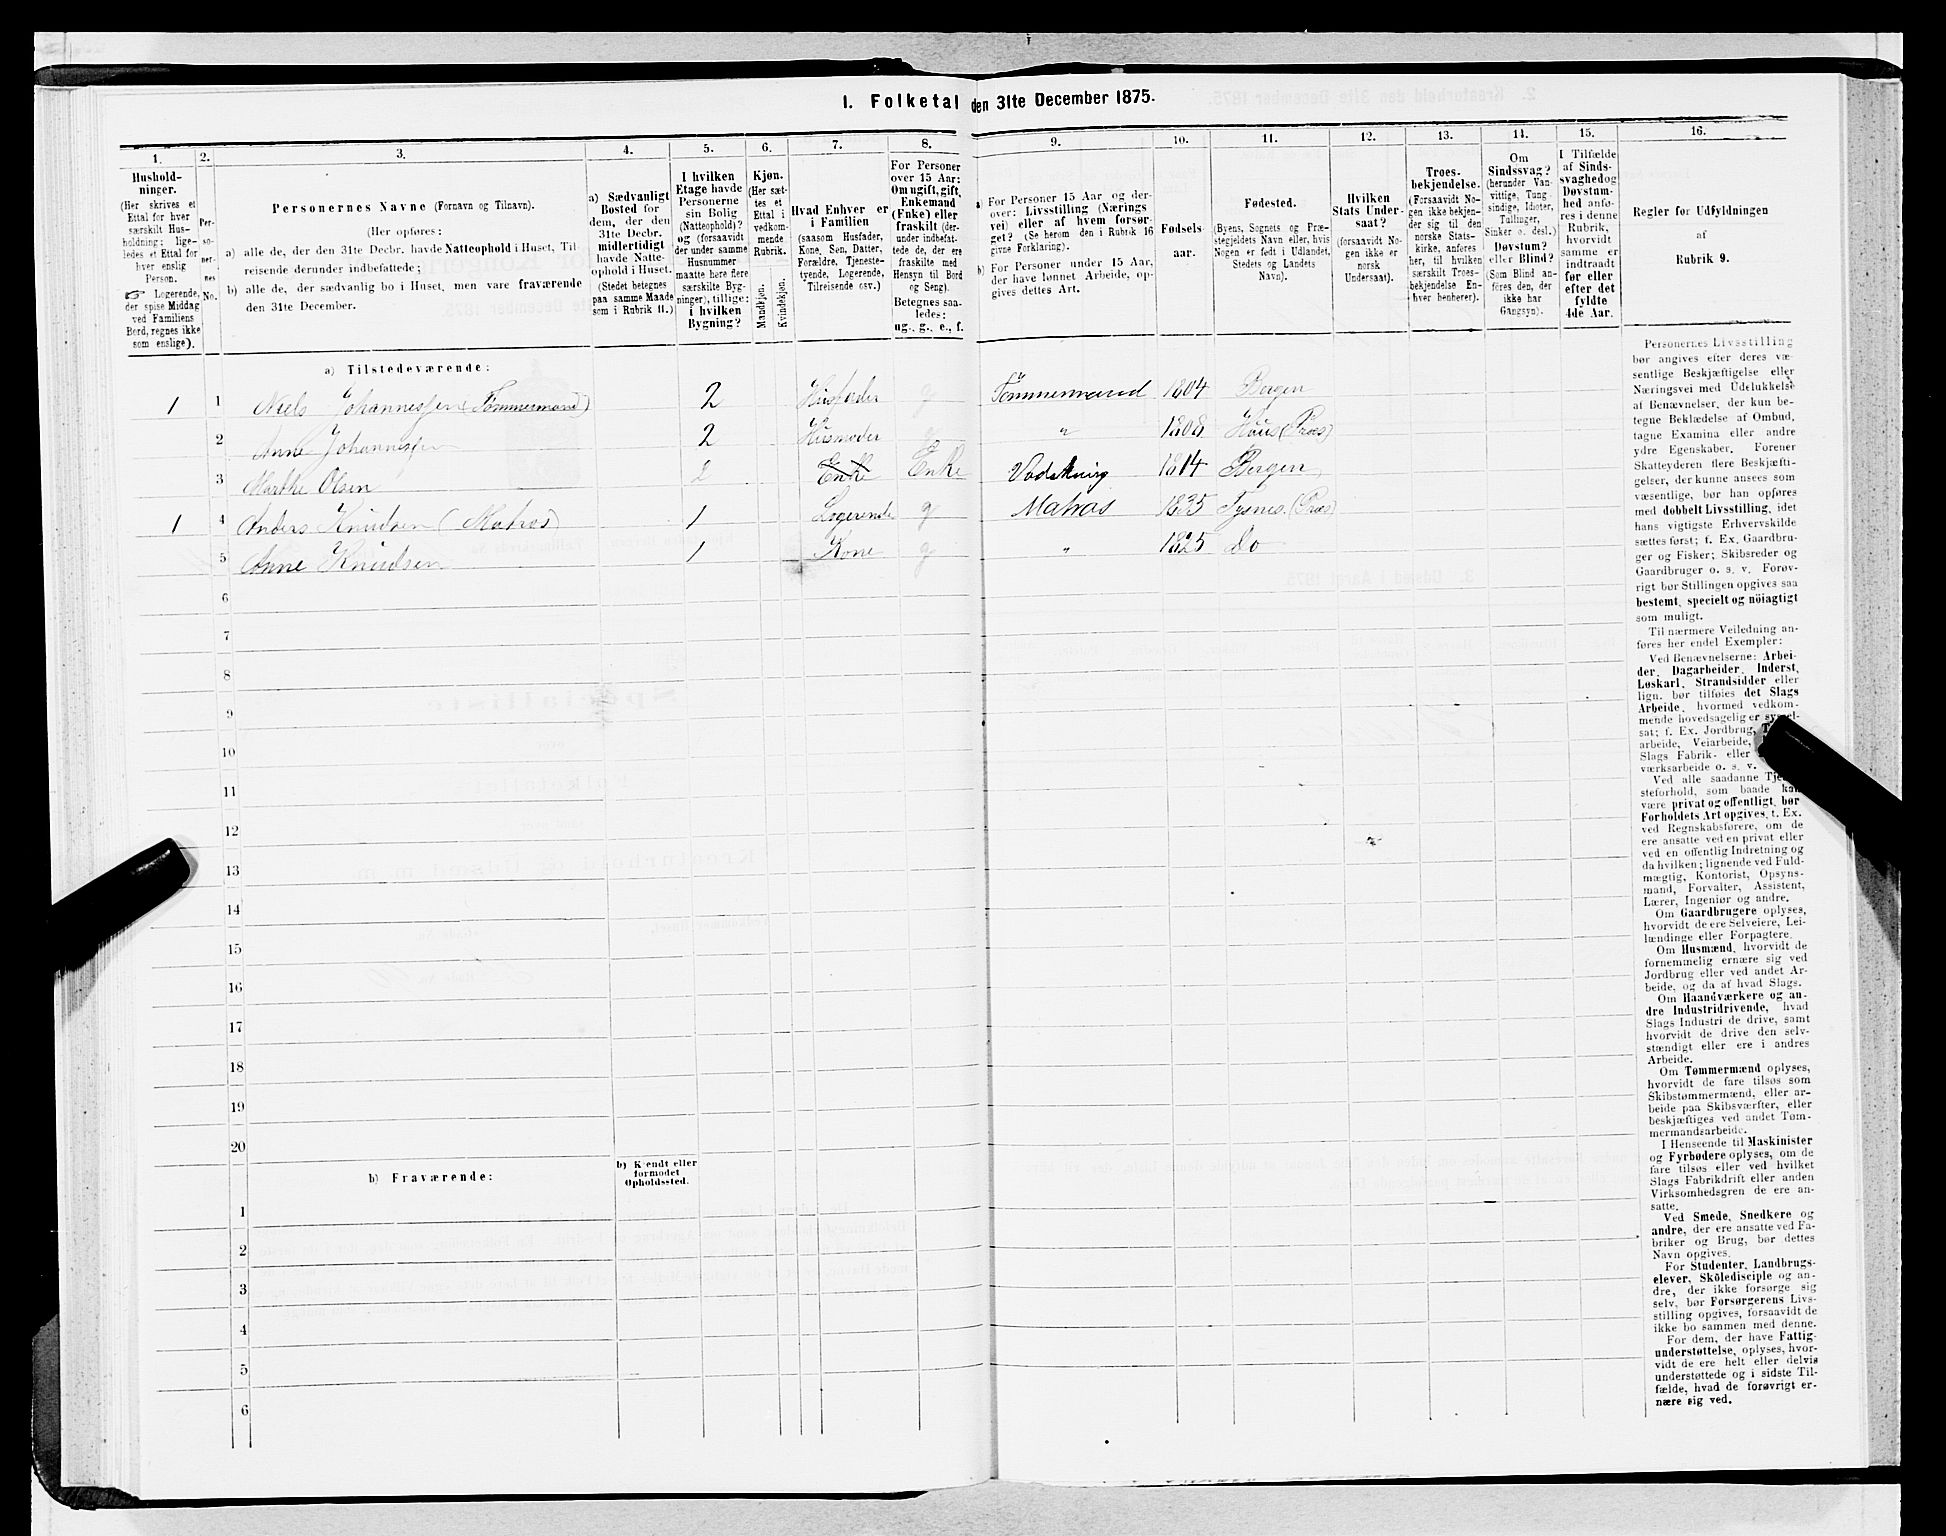 1. Folketal den 31te December 1875.
1.
2.
3.
4.
5.
6.
7.
8.
9.
10.
11.
12.
13.
14.
15.
16.
Hushold-
ninger.
(Her skrives et
Ettal for hver
særskilt Hus-
holdning; lige-
ledes et Ettal for
hver enslig
Person.
Logerende,
der spise Middag
ved Familiens
Bord, regnes ikke
som enslige).
Per-
so-
ner-
nes
No.
Personernes Navne (Fornavn og Tilnavn).
(Her opføres:
a) alle de, der den 31te Decbr. havde Natteophold i Huset, Til-
reisende derunder indbefattede;
b) alle de, der sædvanlig bo i Huset, men vare fraværende
den 31te December.
a) Sædvanligt
Bosted for
dem, der den
31te Decbr.
midlertidigt
havde Natte-
ophold i Huset.
(Stedet betegnes
paa samme Maade
som i Rubrik 11.)
I hvilken
Etage havde
Personerne
sin Bolig
(Natteophold)?
og (forsaavidt
der under samme
Husnummer
maatte here flere
særskilte Byg-
ninger), tillige:
i hvilken
Bygning?
Kjøn.
(Her sæt-
tes et
Ettal i
vedkom-
mende
Rubrik.
Mandkjøn.
Kvindekjøn.
Hvad Enhver er
i Familien
(saasom Husfader,
Kone, Søn, Datter,
Forældre, Tjeneste-
tyende, Logerende,
Tilreisende osv.)
For Personer
over 15 Aar:
Om ugift, gift,
Enkemand
(Enke) eller
fraskilt (der-
under indbefat-
tede de, der ere
fraskilte med
Hensyn til Bord
og Seng).
Betegnes saa-
ledes:
ug., g., e., f.
a) For Personer 15 Aar og der-
over: Livsstilling (Nærings
vei) eller af hvem forsør-
get? (Se herom den i Rubrik 16
givne Forklaring).
b) For Personer under 15 Aar,
der have lønnet Arbeide, op-
gives dettes Art.
Fødsels-
aar.
Fødested.
(Byens, Sognets og Præ-
stegjeldets Navn eller, hvis
Nogen er født i Udlandet,
Stedets og Landets
Navn).
Hvilken
Stats Under-
saat?
(forsaavidt No-
gen ikke er
norsk
Undersaat).
Troes-
bekjendelse.
(Forsaavidt No-
gen ikke bekjen-
der sig til den
norske Stats-
kirke, anføres
her, til hvilken
særskilt Troes-
bekjendelse En-
hver henhører).
Om
Sindssvag?
(herunder Van-
vittige, Tung-
sindige, Idioter,
Tullinger,
Sinker o. desl.)
Døvstum?
eller Blind?
(Som Blind an-
føres den, der
ikke har
Gangsyn).
I Tilfælde
af Sinds-
svaghed og
Døvstum-
hed anfø-
res i denne
Rubrik,
hvorvidt
samme er
indtraadt
før eller
efter det
fyldte
4de Aar.
Regler for Udfyldningen
af
Rubrik 9.
a) Tilstedeværende:
1 1 Niels Johannessen (Tømmermand) 2 Husfader g Tømmermand 1804 Bergen
2 Anne Johannessen 2 Husmoder g " 1808 Haus (Præs)
3 Marthe Olsen 2 Enke Enke Vadskning 1814 Bergen
1 4 Anders Knudsen (Matros) 1 Logerende g Matros 1835 Tysnes (Præs)
5 Anne Knudsen 1 Kone g " 1825 Do
6
7
8
9
10
11
12
13
14
15
16
17
18
19
20
b) Fraværende:
b) Kjendt eller
formodet
Opholdssted.
1
2
3
4
5
6
Personernes Livsstilling
bør angives efter deres væ-
sentlige Beskjæftigelse eller
Næringsvei med Udelukkelse
af Benævnelser, der kun be-
tegne Beklædelse af Ombud,
tagne Examina eller andre
ydre Egenskaber. Forener
Skatteyderen flere Beskjæfti-
gelser, der kunne ansees som
væsentlige, bør han opføres
med dobbelt Livsstilling, idet
hans vigtigste Erhvervskilde
sættes først; f. Ex. Gaardbru-
ger og Fisker; Skibsreder og
Gaardbruger o. s. v. Forøv-
rigt bør Stillingen opgives saa
bestemt, specielt og nöiagtigt
som muligt.
Til nærmere Veiledning an-
føres her endel Exempler:
Ved Benævnelserne: Arbei-
der, Dagarbeider, Inderst,
Løskarl, Strandsidder eller
lign. bør tilføies det Slags
Arbeide, hvormed vedkom-
mende hovedsagelig er syssel-
sat; f. Ex. Jordbrug,
arbeide, Veiarbeide,
Slags Fabrik- eller
værksarbeide o. s. v.
Ved alle saadanne Tje
steforhold, som baade kan
være privat og offentligt, bør
Forholdets Art opgives, t. Ex.
ved Regnskabsførere, om de
ere ansatte ved en privat eller
ved en offentlig Indretning og
da hvilken; lignende ved Fuld-
mægtig, Kontorist, Opsyns-
mand, Forvalter, Assistent,
Lærer, Ingeniør og andre.
Om Gaardbrugere oplyses,
hvorvidt de ere Selveiere, Lei-
lændinge eller Forpagtere.
Om Husmænd, hvorvidt de
fornemmelig ernære sig ved
Jordbrug eller ved andet Ar-
beide, og da af hvad Slags.
Om Haandværkere og an-
dre Industridrivende, hvad
Slags Industri de drive, samt
hvorvidt de drive den selv-
stændigt eller ere i andres
Arbeide.
Om Tømmermænd oplyses,
hvorvidt de fare tilsøs som
Skibstømmermænd, eller ar-
beide paa Skibsværfter, eller
beskjæftiges ved andet Tøm-
mermandsarbeide.
I Henseende til Maskinister
og Fyrbødere oplyses, om de
fare tilsøs eller ved hvilket
Slags Fabrikdrift eller anden
Virksomhedsgren de ere an-
satte.
Ved Smede, Snedkere og
andre, der ere ansatte ved Fa-
briker og Brug, bør dettes
Navn opgives.
For Studenter, Landbrugs-
elever, Skoledisciple og an-
dre, der ikke forsørge sig
selv, bør Forsørgerens Livs-
stilling opgives, forsaavidt de
ikke bo sammen med denne.
For dem, der have Fattig-
understøttelse, oplyses, hvor-
vidt de ere helt eller delvis
understøttede og i sidste Til-
fælde, hvad de forøvrigt er-
nære sig ved.